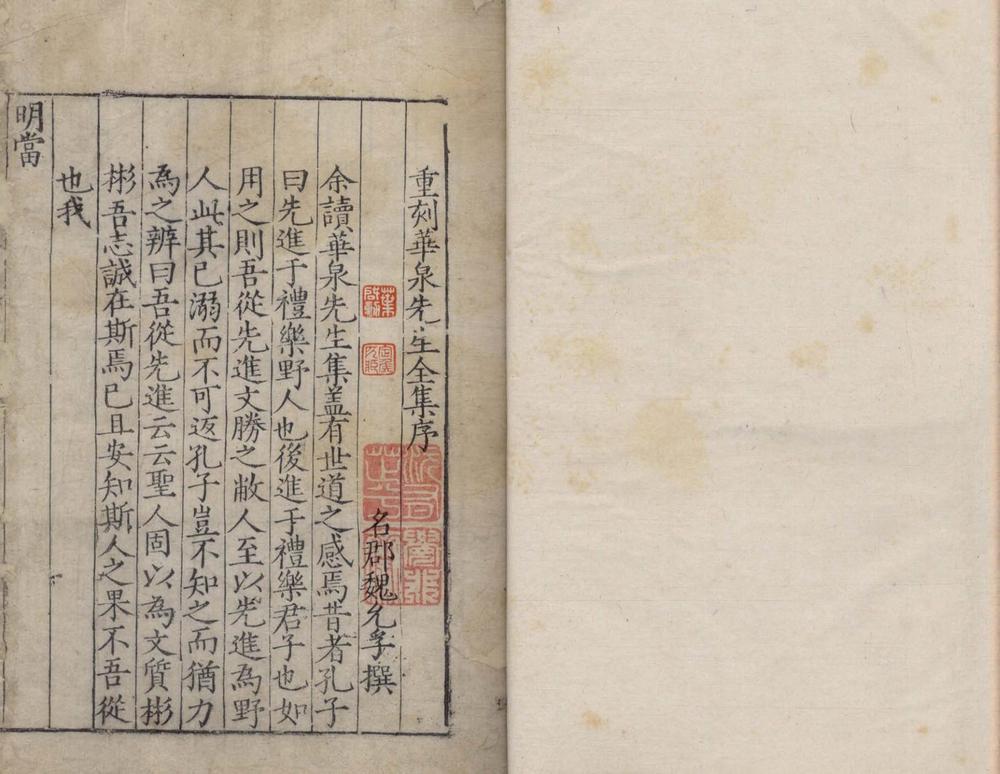 重刻華泉先生全集序
名郡魏允孚撰
余讀華泉先生集盖有世道之感焉昔者孔子
曰先進于禮樂野人也後進于禮樂君子也如
用之則吾從先進文勝之敝人至以先進為野
人此其已溺而不可返孔子豈不知之而猶力
為之辨曰吾從先進云云聖人固以為文質彬
彬吾志誠在斯焉已且安知斯人之果不吾從
也我
明當